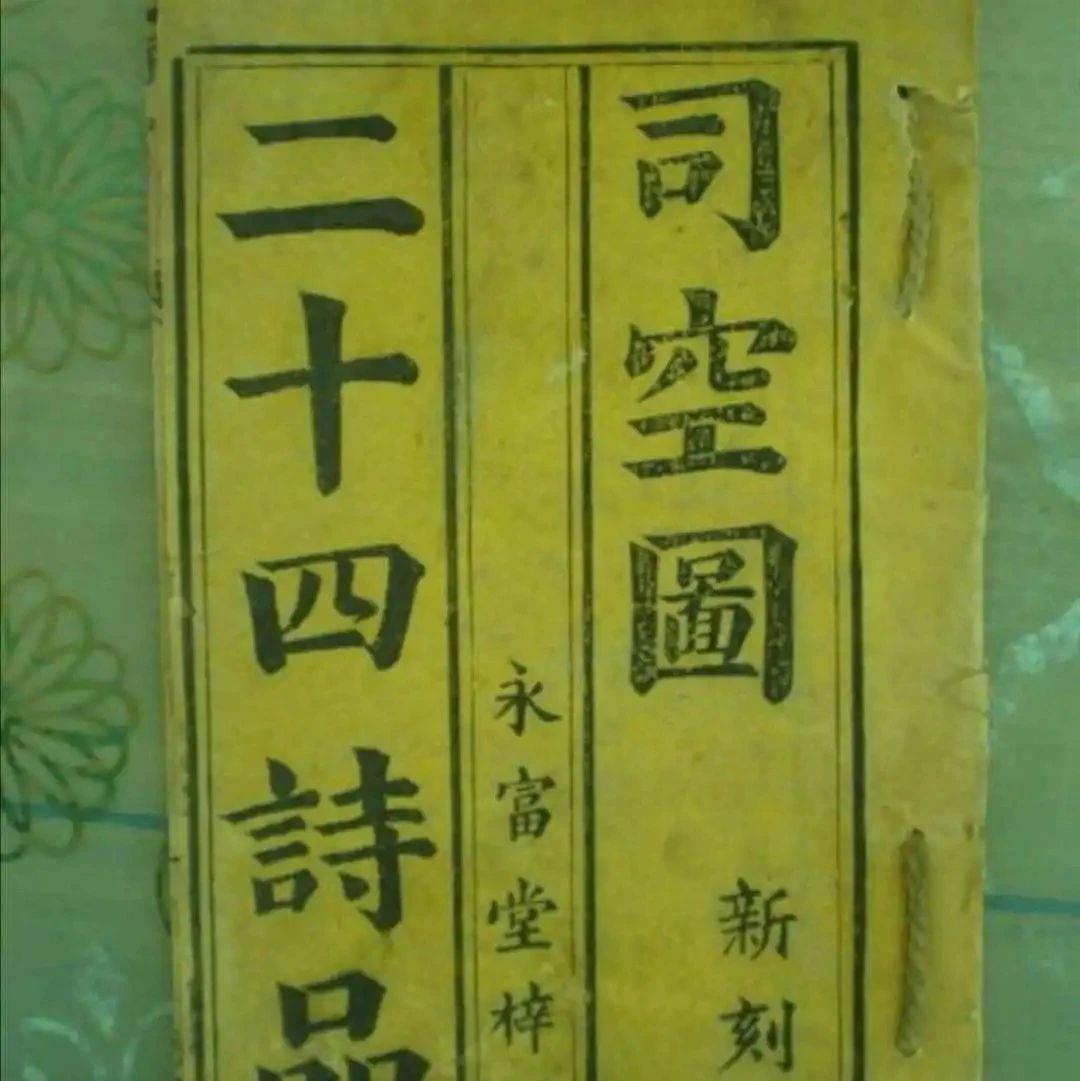 司空圖
新刻
永富堂梓
二十四詩品